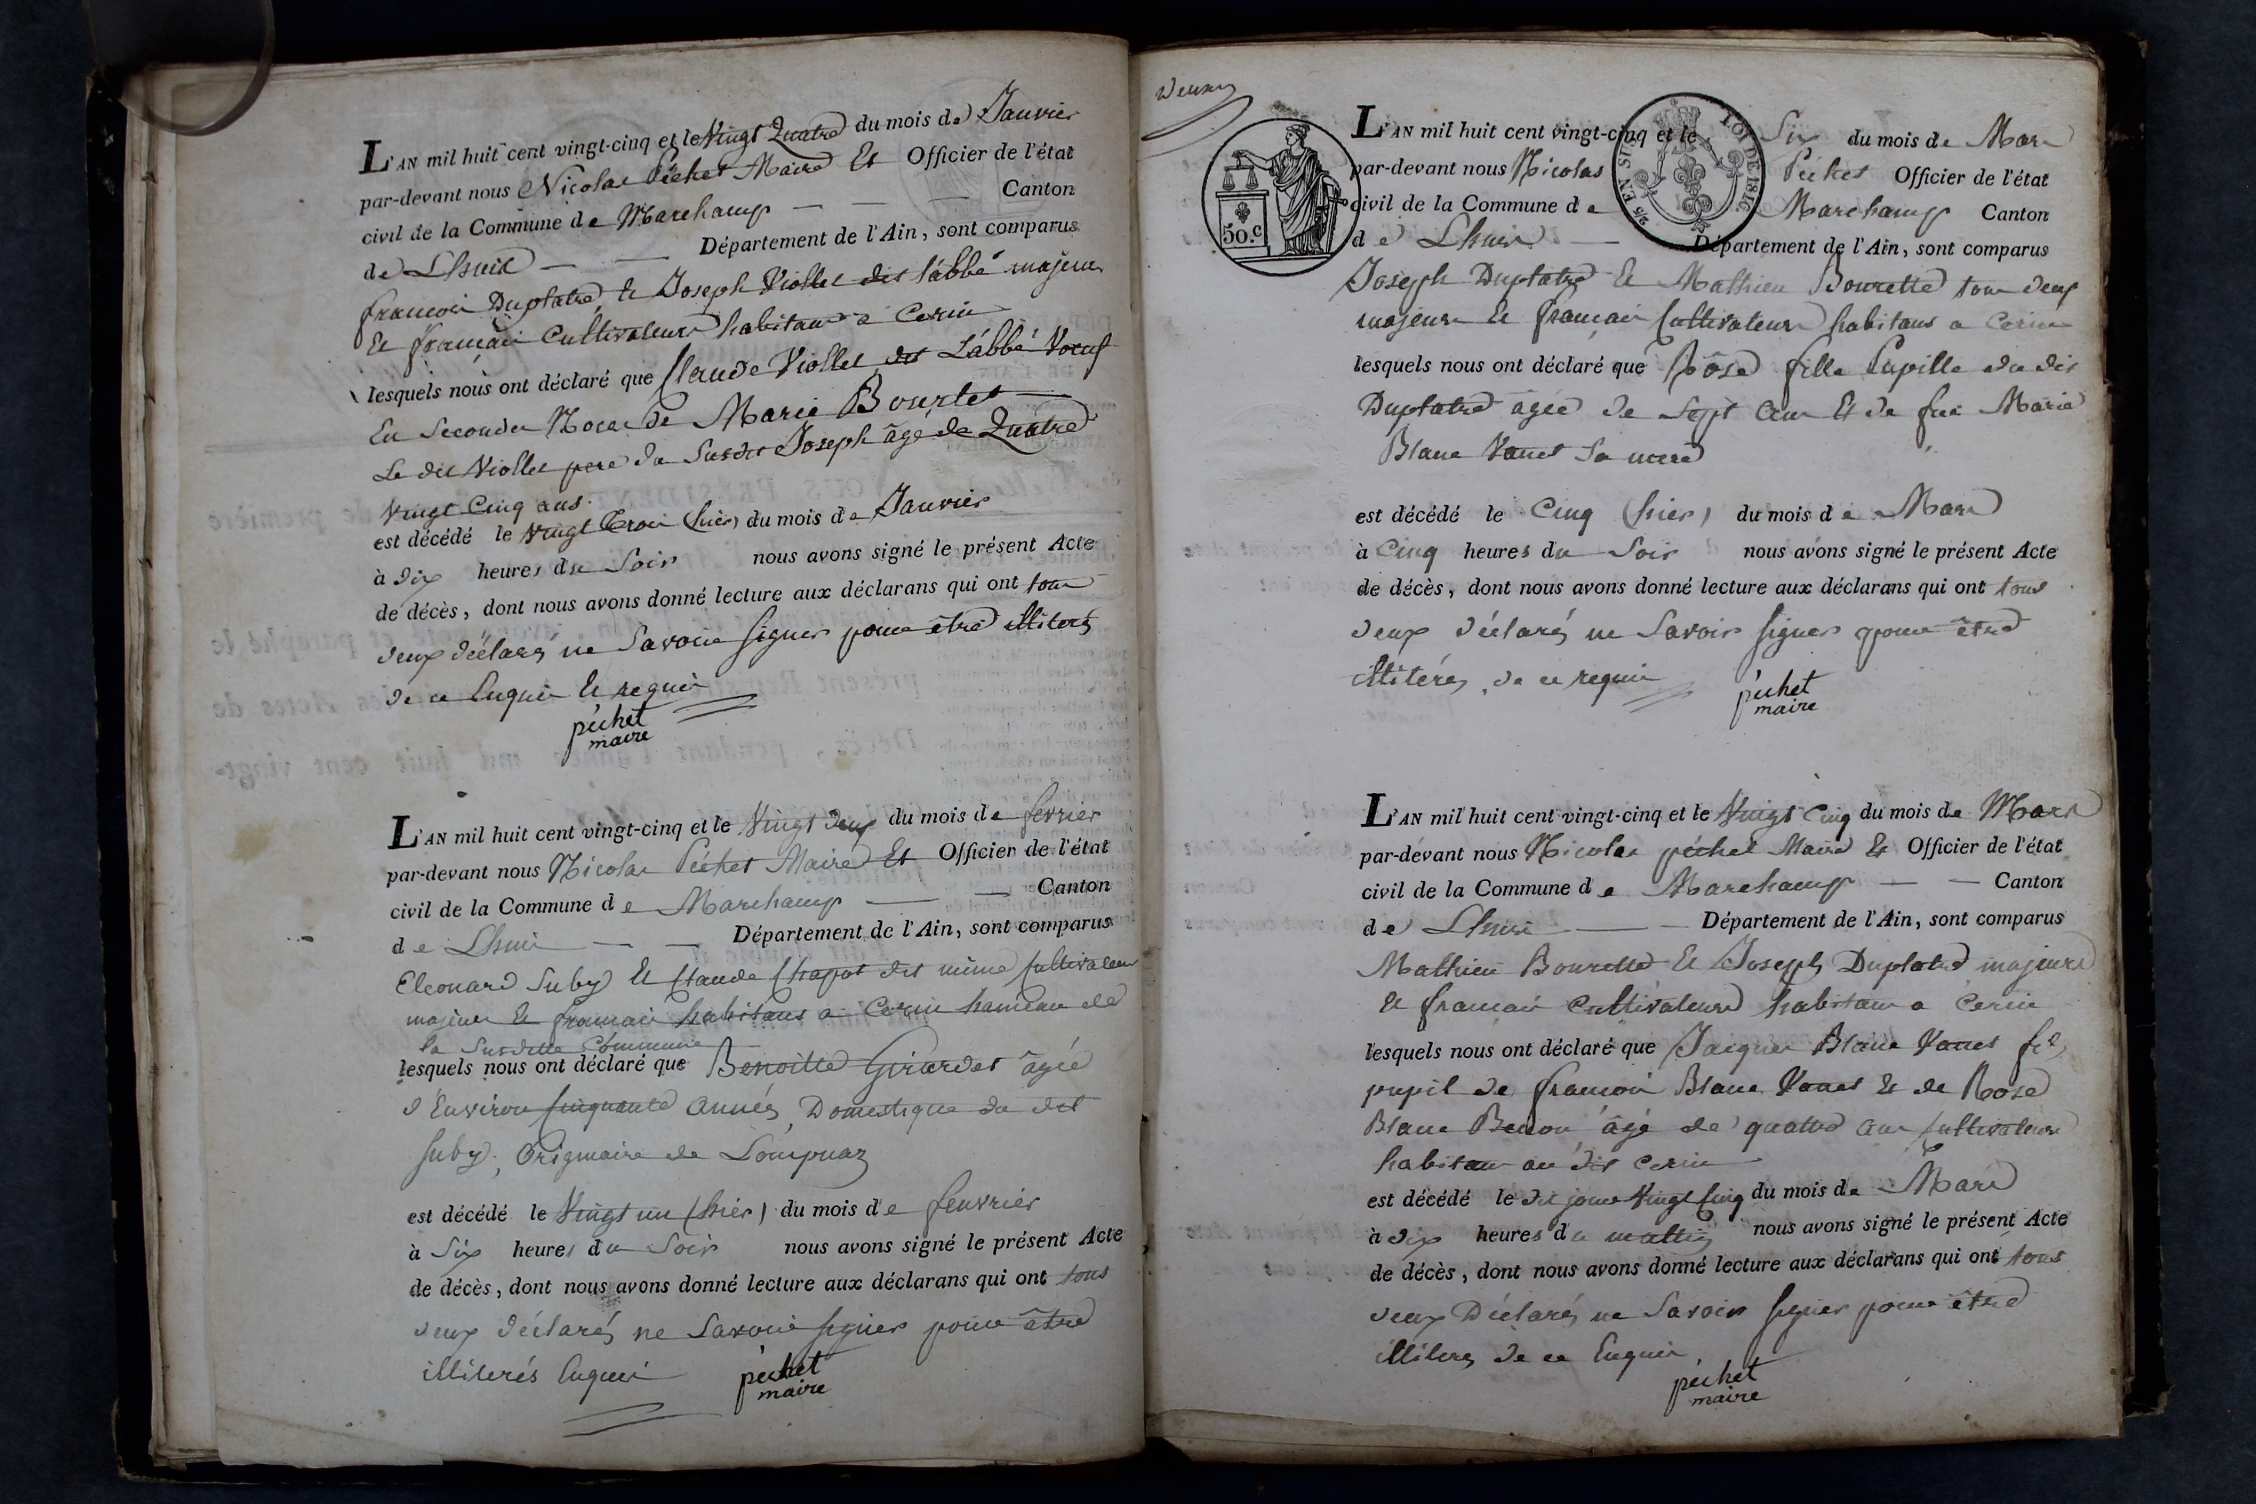 L'AN mil huit cent vingt-cinq et le Vingt Quatre du mois de Janvier
par-devant nous Nicolas Péchet Maire Et Officier de l'état
civil de la Commune de Marchamp — — — Canton
de Lhuis — — Département de l'Ain, sont comparus
francois Duplatre et Joseph Viollet dit l'abbé majeurs
Et françain Cultivateurs habitans a Cerin
lesquels nous ont déclaré que Claude Viollet dit L'abbé Voeuf
En Secondes Noces de Marie Bourlet
Le dit Viollet pere du Susdit Joseph âgé de Quatre
Vingt Cinq ans.
est décédé le Vingt Trois (hier) du mois de Janvier
à dix heures du Soir nous avons signé le présent Acte
de décès, dont nous avons donné lecture aux déclarans qui ont tous
deux déclarés ne Savoir signer pour être illiterés
de ce Enquis et requis
péchet
maire
L'AN mil huit cent vingt-cinq et le Vingt deux du mois de fevrier
par-devant nous Nicolas Péchet Maire Et Officier de l'état
civil de la Commune de Marchamp — — Canton
de Lhuis — — Département de l'Ain, sont comparus
Eleonard Suby Et Claude Chapot dit mime Cultivateur
majeurs Et francais habitans a Cerin hameau de
la Susditte Commune
lesquels nous ont déclaré que Benoitte Girardet âgée
d'Environ Cinquante années, Domestique du dit
Suby, Originaire de Lompnaz
est décédé le Vingt un (hier) du mois de feuvrier
à Six heures du Soir nous avons signé le présent Acte
de décès, dont nous avons donné lecture aux déclarans qui ont tous
deux déclarés ne Savoir signer pour être
illiterés Enquis
péchet
maire
deux
50.c
2/5 EN SUS
LOI DE 1816
L'AN mil huit cent vingt-cinq et le Six du mois de Mars
par-devant nous Nicolas Péchet Officier de l'état
civil de la Commune de Marchamp Canton
de Lhuis — Département de l'Ain, sont comparus
Joseph Duplatre Et Mathieu Bourette tous deux
majeurs Et français Cultivateurs habitans a Cerin
lesquels nous ont déclaré que Rôse fille Pupille du dit
Duplatre âgée de Sept ans Et de fue Marie
Blanc Vanet Sa mere
est décédé le Cinq (hier) du mois de Mars
à Cinq heures du Soir nous avons signé le présent Acte
de décès, dont nous avons donné lecture aux déclarans qui ont tous
deux déclarés ne Savoir signer pour être
illitérés, de ce requis
péchet
maire
L'AN mil huit cent vingt-cinq et le Vingt Cinq du mois de Mars
par-devant nous Nicolas péchet Maire Et Officier de l'état
civil de la Commune de Marchamp — — Canton
de Lhuis — — Département de l'Ain, sont comparus
Mathieu Bourette Et Joseph Duplatre majeurs
Et francais Cultivateurs habitans a Cerin
lesquels nous ont déclaré que Jacques Blanc Vanet fils
pupil de francois Blanc Vanet Et de Rose
Blanc Benon âgé de quatre ans Cultivateurs
habitans au dit Cerin
est décédé le dit jour Vingt Cinq du mois de Mars
à dix heures du mattin nous avons signé le présent Acte
de décès, dont nous avons donné lecture aux déclarans qui ont tous
deux Déclarés ne Savoir signer pour être
illiterés de ce Enquis
péchet
maire